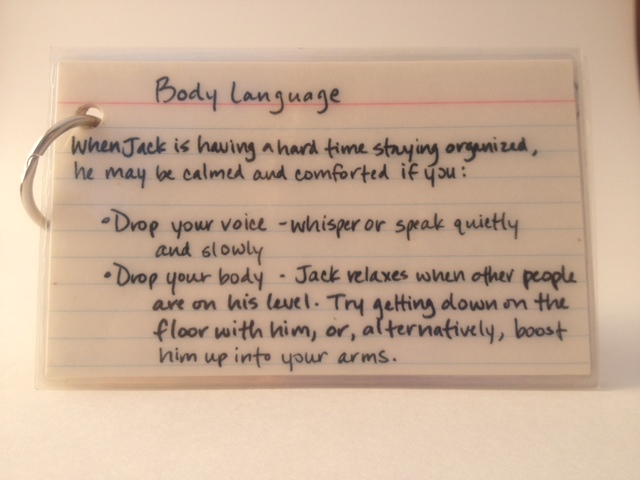 Body Language
When Jack is having a hard time staying organized,
he may be calmed and comforted if you:
• Drop your voice - whisper or speak quietly
and slowly
• Drop your body - Jack relaxes when other people
are on his level. Try getting down on the
floor with him, or, alternatively, boost
him up into your arms.